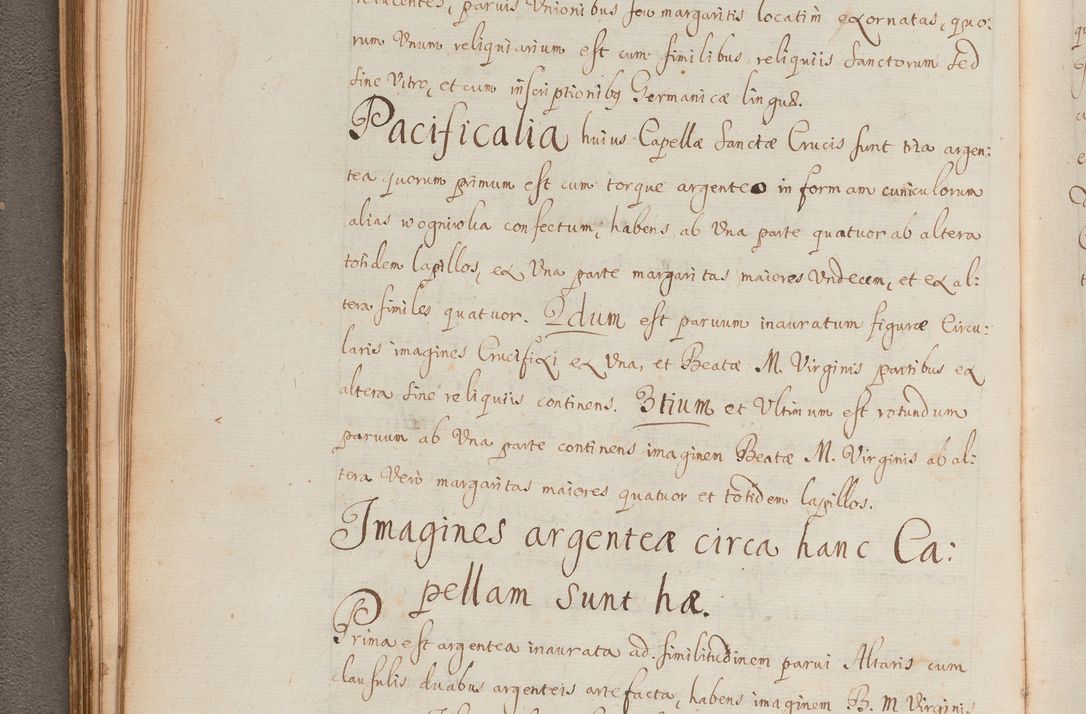 parvis Unionibus seu margaritis locatim exornatas, quo:
rum Unum reliquiarium est cum similibus reliquiis Sanctorum sed
sine Vitro, et cum inscriptionibq Germanicæ linguæ.
Pacificalia huius Capellæ Sanctæ Crucis sunt tria argen:
tea quorum primum est cum torque argenteo in formam cuniculorum
alias wogniwka confectum, habens ab Una parte quatuor ab altera
totidem lapillos, ex Una parte margaritas maiores Undecem, et ex al:
tera similes quatuor. 2dum est parvum inauratum figuræ Circu:
laris imagines Crucifixi ex Una, et Beatæ M. Virginis partibus ex
altera sine reliquiis continens. 3tium et Ultimum est rotundum
parvum ab Una parte continens imaginem Beatæ M. Virginis ab al:
tera Vero margaritas maiores quatuor et totidem lapillos.
Imagines argenteæ circa hanc Ca:
pellam sunt hæ.
Prima est argentea inaurata ad similitudinem parvi Altaris cum
clausulis duabus argenteis artefacta, habens imaginem B. M Virginis